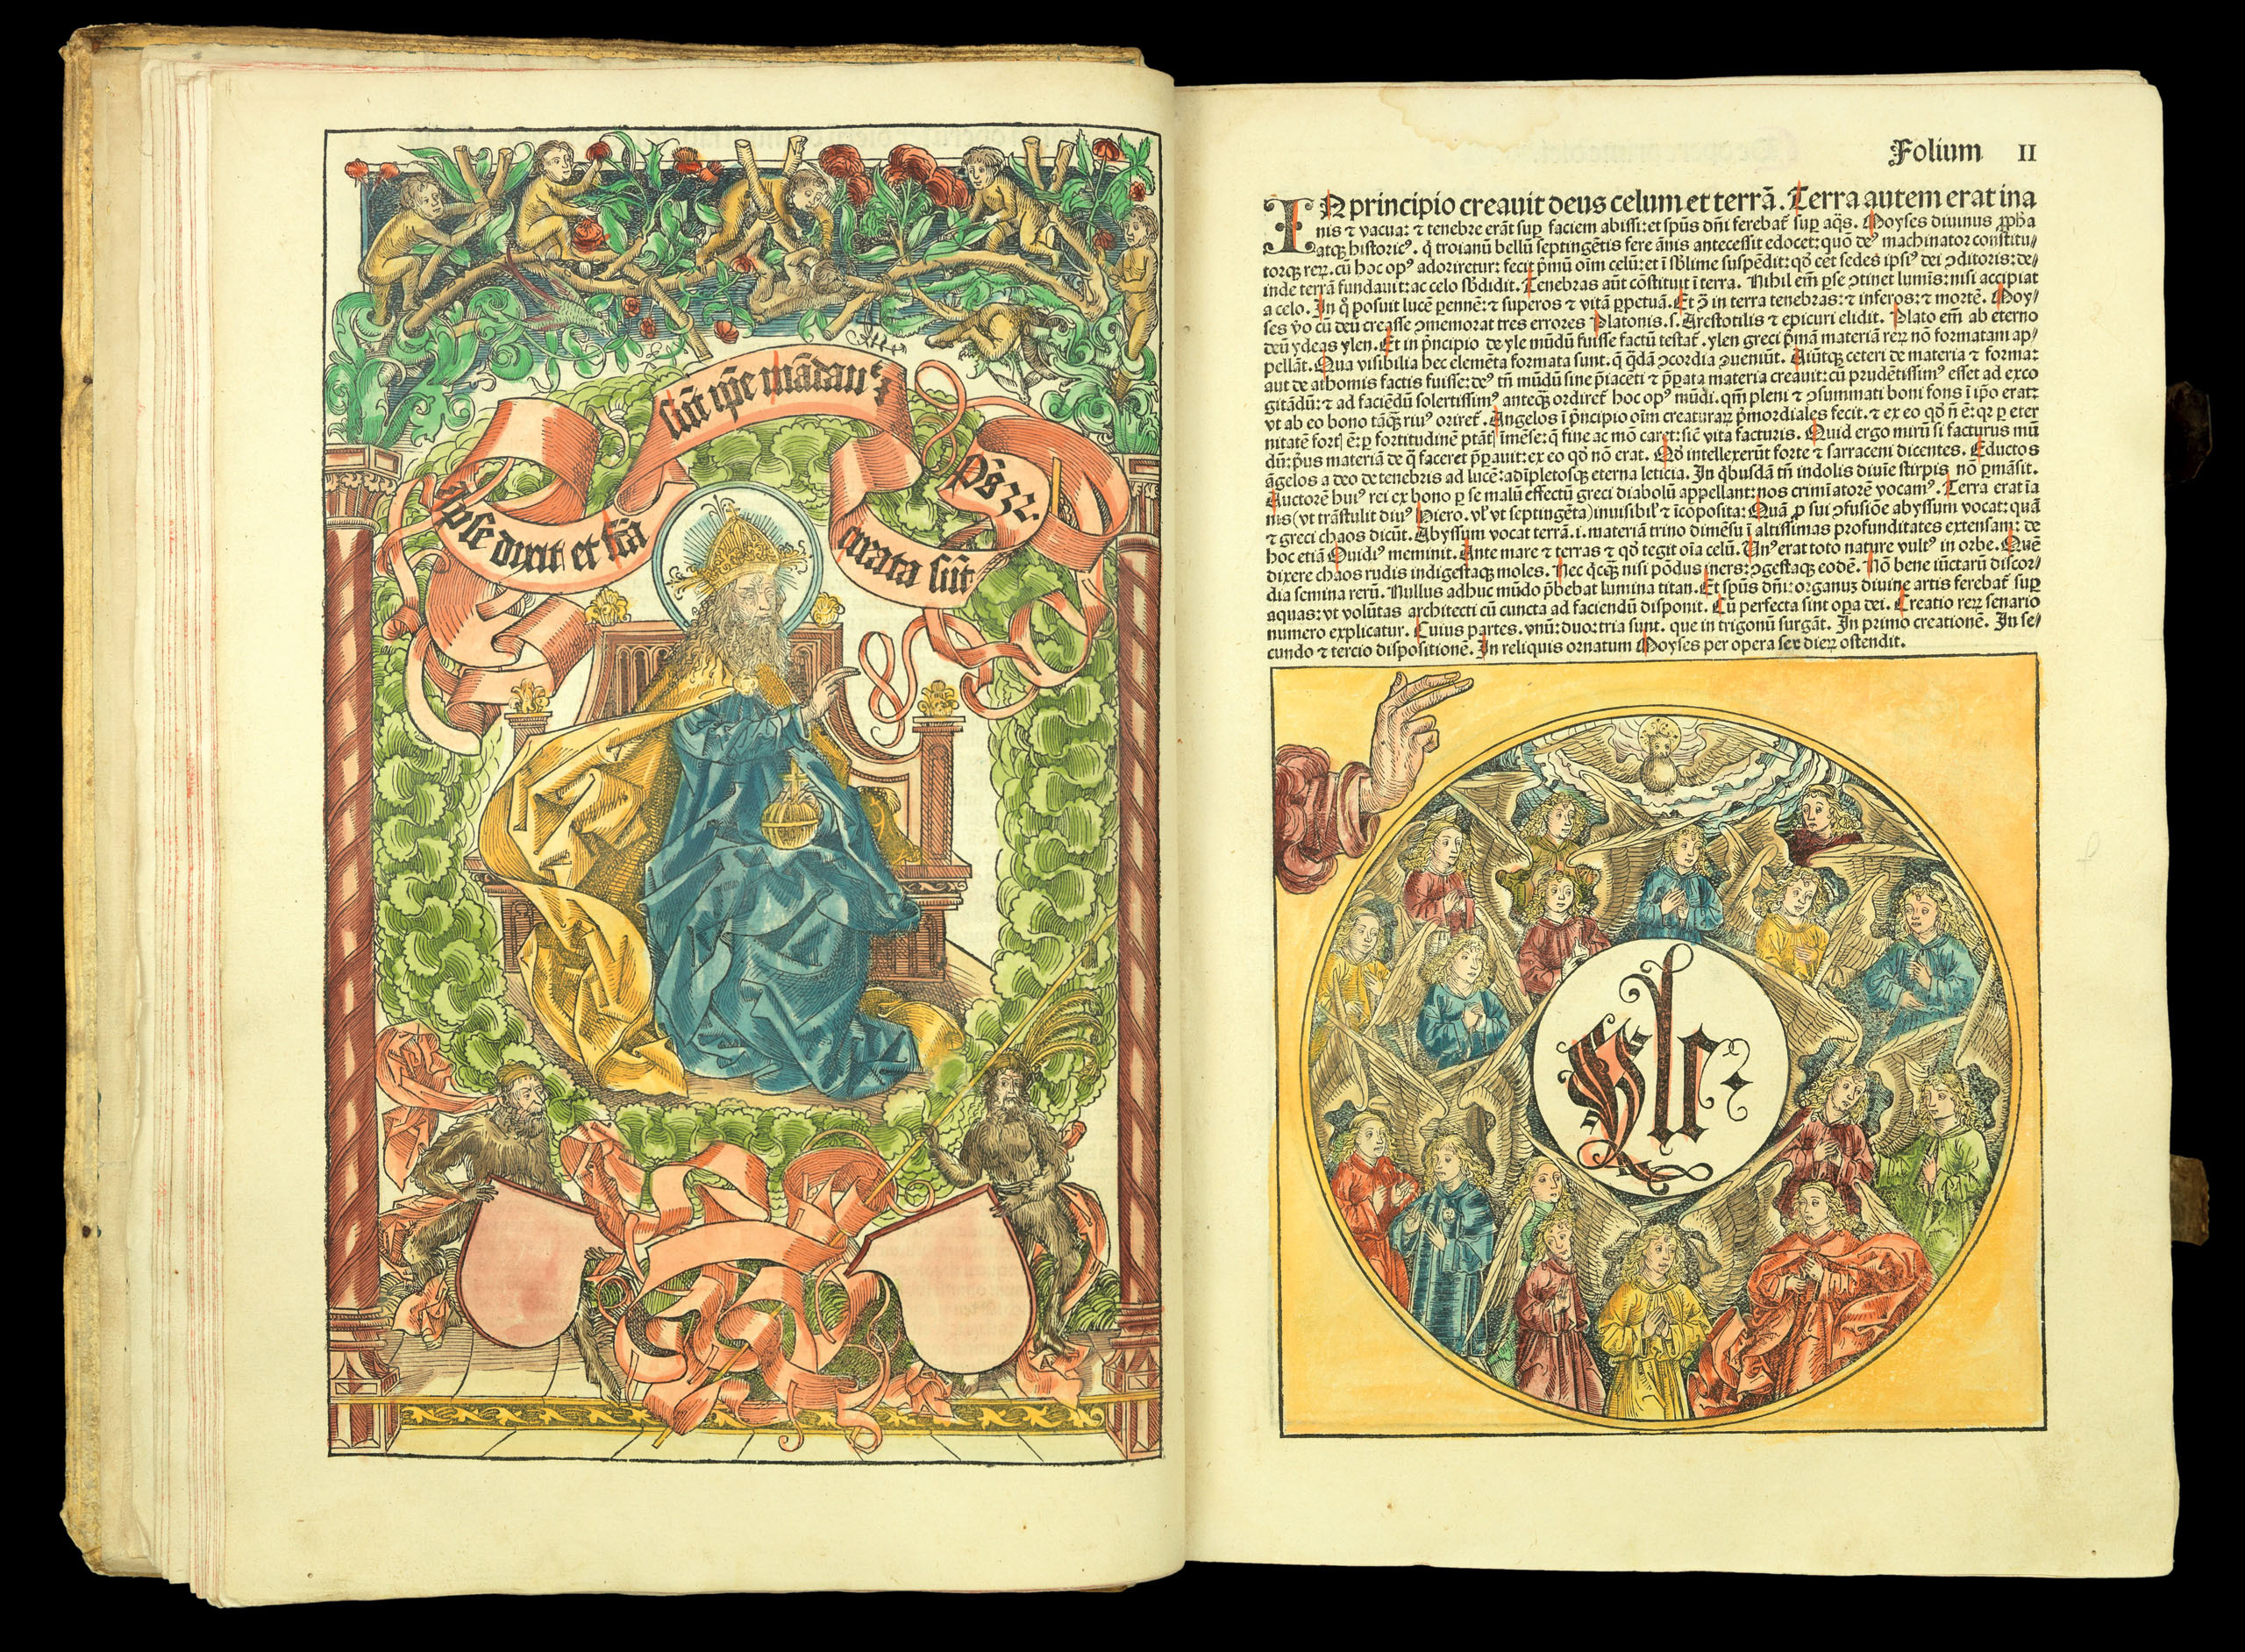 ipse dixit et fcā
sūt ip̄e mādau᷒
creata sūt
ps 32.
Folium II
IN principio creauit deus celum et terrā. Terra autem erat ina
nis ⁊ vacua: ⁊ tenebre erāt suꝑ faciem abissi: et spūs dn̄i ferebat᷑ suꝑ aq̄s. Moyses diuinus ꝓph̄a
atqꝫ historicꝰ. q̄ troianū bellū septingētis fere ānis antecessit edocet: quō deꝰ machinator constitu/
torqꝫ reꝝ. cū hoc opꝰ adoriretur: fecit p̄mū oīm celū: et ī sb̄lime suspēdit: qđ eēt sedes ipsiꝰ dei ↄditoris: de/
inde terrā fundauit: ac celo sb̄didit. Tenebras aūt cōstituit ī terra. Nihil em̄ ꝑ se ↄtinet luminis: nisi accipiat
a celo. In q̄ posuit lucē ꝑennē: ⁊ superos ⁊ vitā ꝑpetuā. Et ↄ̄ in terra tenebras: ⁊ inferos: ⁊ mortē. Moy/
ses v̄o cū deū creasse ↄmemorat tres errores Platonis. s. Arestotilis ⁊ epicuri elidit. Plato em̄ ab eterno
deū ydeas ylen. Et in p̄ncipio de yle mūdū fuisse factū testat᷑. ylen greci p̄mā materiā reꝝ nō formatam ap/
pellāt. Qua visibilia hec elemēta formata sunt. q̄ q̄dā ↄcordia ↄueniūt. Aiūtqꝫ ceteri de materia ⁊ forma:
aut de athomis factis fuisse: deꝰ tn̄ mūdū sine p̄iacēti ⁊ p̄ꝑata materia creauit: cū prudētissimꝰ esset ad exco
gitādū: ⁊ ad faciēdū solertissimꝰ anteqꝫ̄ ordiret᷑ hoc opꝰ mūdi. qm̄ pleni ⁊ ↄsummati boni fons ī ip̄o erat:
vt ab eo bono tāqꝫ̄ riuꝰ oriret᷑. Angelos ī p̄ncipio oīm creaturaꝝ p̄mordiales fecit. ⁊ ex eo qđ n̄ ē: qꝛ ꝑ eter
nitatē fort᷑ ē: ꝑ fortitudinē ptāt᷑ īmēse: q̄ fine ac mō caret: sic̄ vita facturis. Quid ergo mirū si facturus mū
dū: pꝰus materiā de q̄ faceret p̄ꝑauit: ex eo qđ nō erat. Qđ intellexerūt forte ⁊ sarraceni dicentes. Eductos
āgelos a deo de tenebris ad lucē: adīpletosqꝫ eterna leticia. In q̄busdā tn̄ indolis diuīe stirpis nō ꝑmāsit.
Auctorē huiꝰ rei ex bono ꝑ se malū effectū greci diabolū appellant: nos crimīatorē vocamꝰ. Terra erat īa
nis (vt trāstulit diuꝰ Hiero. vl᷑ vt septingēta) inuisibil᷑ ⁊ īcōposita: Quā ꝓ sui ↄfusiōe abyssum vocat: quā
⁊ greci chaos dicūt. Abyssum vocat terrā. i. materiā trino dimēsu ī altissimas profunditates extensam: de
hoc etiā Ouidiꝰ meminit. Ante mare ⁊ terras ⁊ qđ tegit oīa celū. Vnꝰ erat toto nature vultꝰ in orbe. Quē
dixere chaos rudis indigestaqꝫ moles. Nec q̄cqꝫ̄ nisi pōdus iners: ↄgestaqꝫ eodē. Nō bene iūctarū discor/
dia semina rerū. Nullus adhuc mūdo p̄bebat lumina titan. Et spūs dn̄i: organuꝫ diuine artis ferebat᷑ suꝑ
aquas: vt volūtas architecti cū cuncta ad faciendū disponit. Cū perfecta sint oꝑa dei. Creatio reꝝ senario
numero explicatur. Cuius partes. vnū: duo: tria sunt. que in trigonū surgāt. In primo creationē. In se/
cundo ⁊ tercio dispositionē. In reliquis ornatum Moyses per opera sex dieꝝ ostendit.